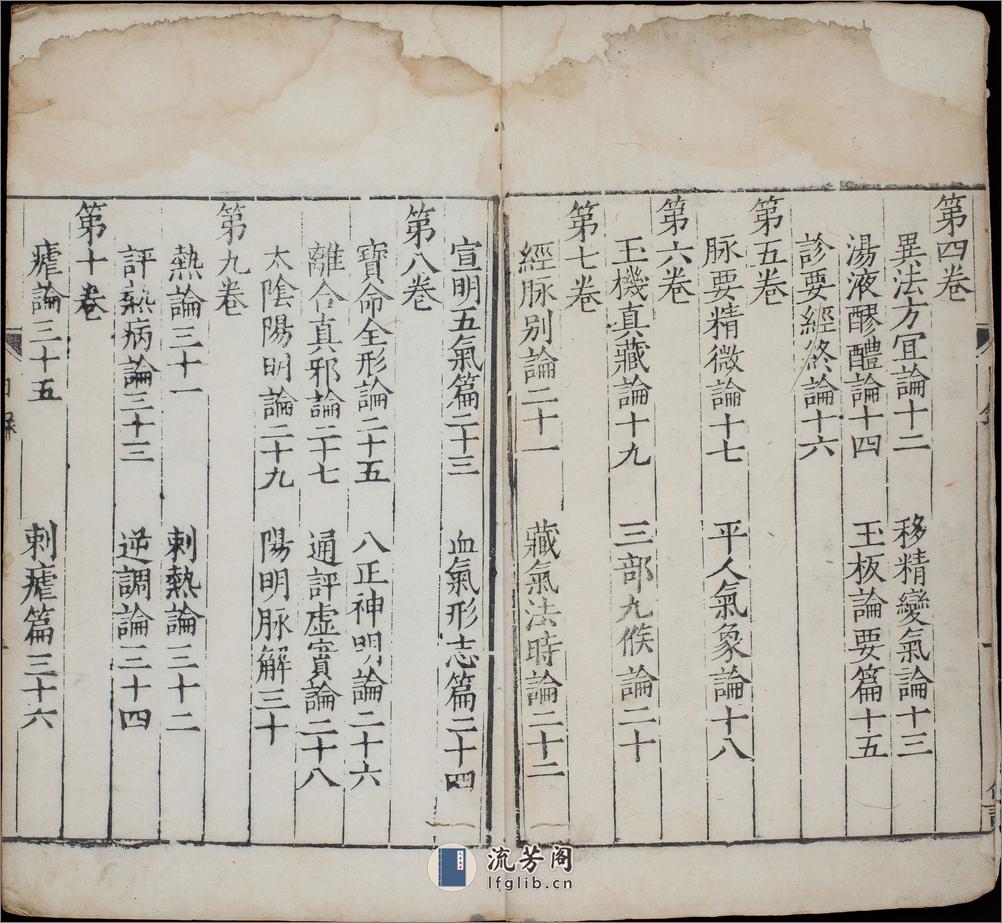 第四卷
異法方宜論十二 移精變氣論十三
湯液醪醴論十四 玉板論要篇十五
診要經終論十六
第五卷
脉要精微論十七 平人氣象論十八
第六卷
玉機真藏論十九 三部九候論二十
第七卷
經脉别論二十一 藏氣法時論二十二
宣明五氣篇二十三 血氣形志篇二十四
第八卷
寶命全形論二十五 八正神明論二十六
離合真邪論二十七 通評虛實論二十八
太陰陽明論二十九 陽明脉解三十
第九卷
熱論三十一 刺熱論三十二
評熱病論三十三 逆調論三十四
第十卷
瘧論三十五 刺瘧篇三十六
流芳阁
lfglib.cn